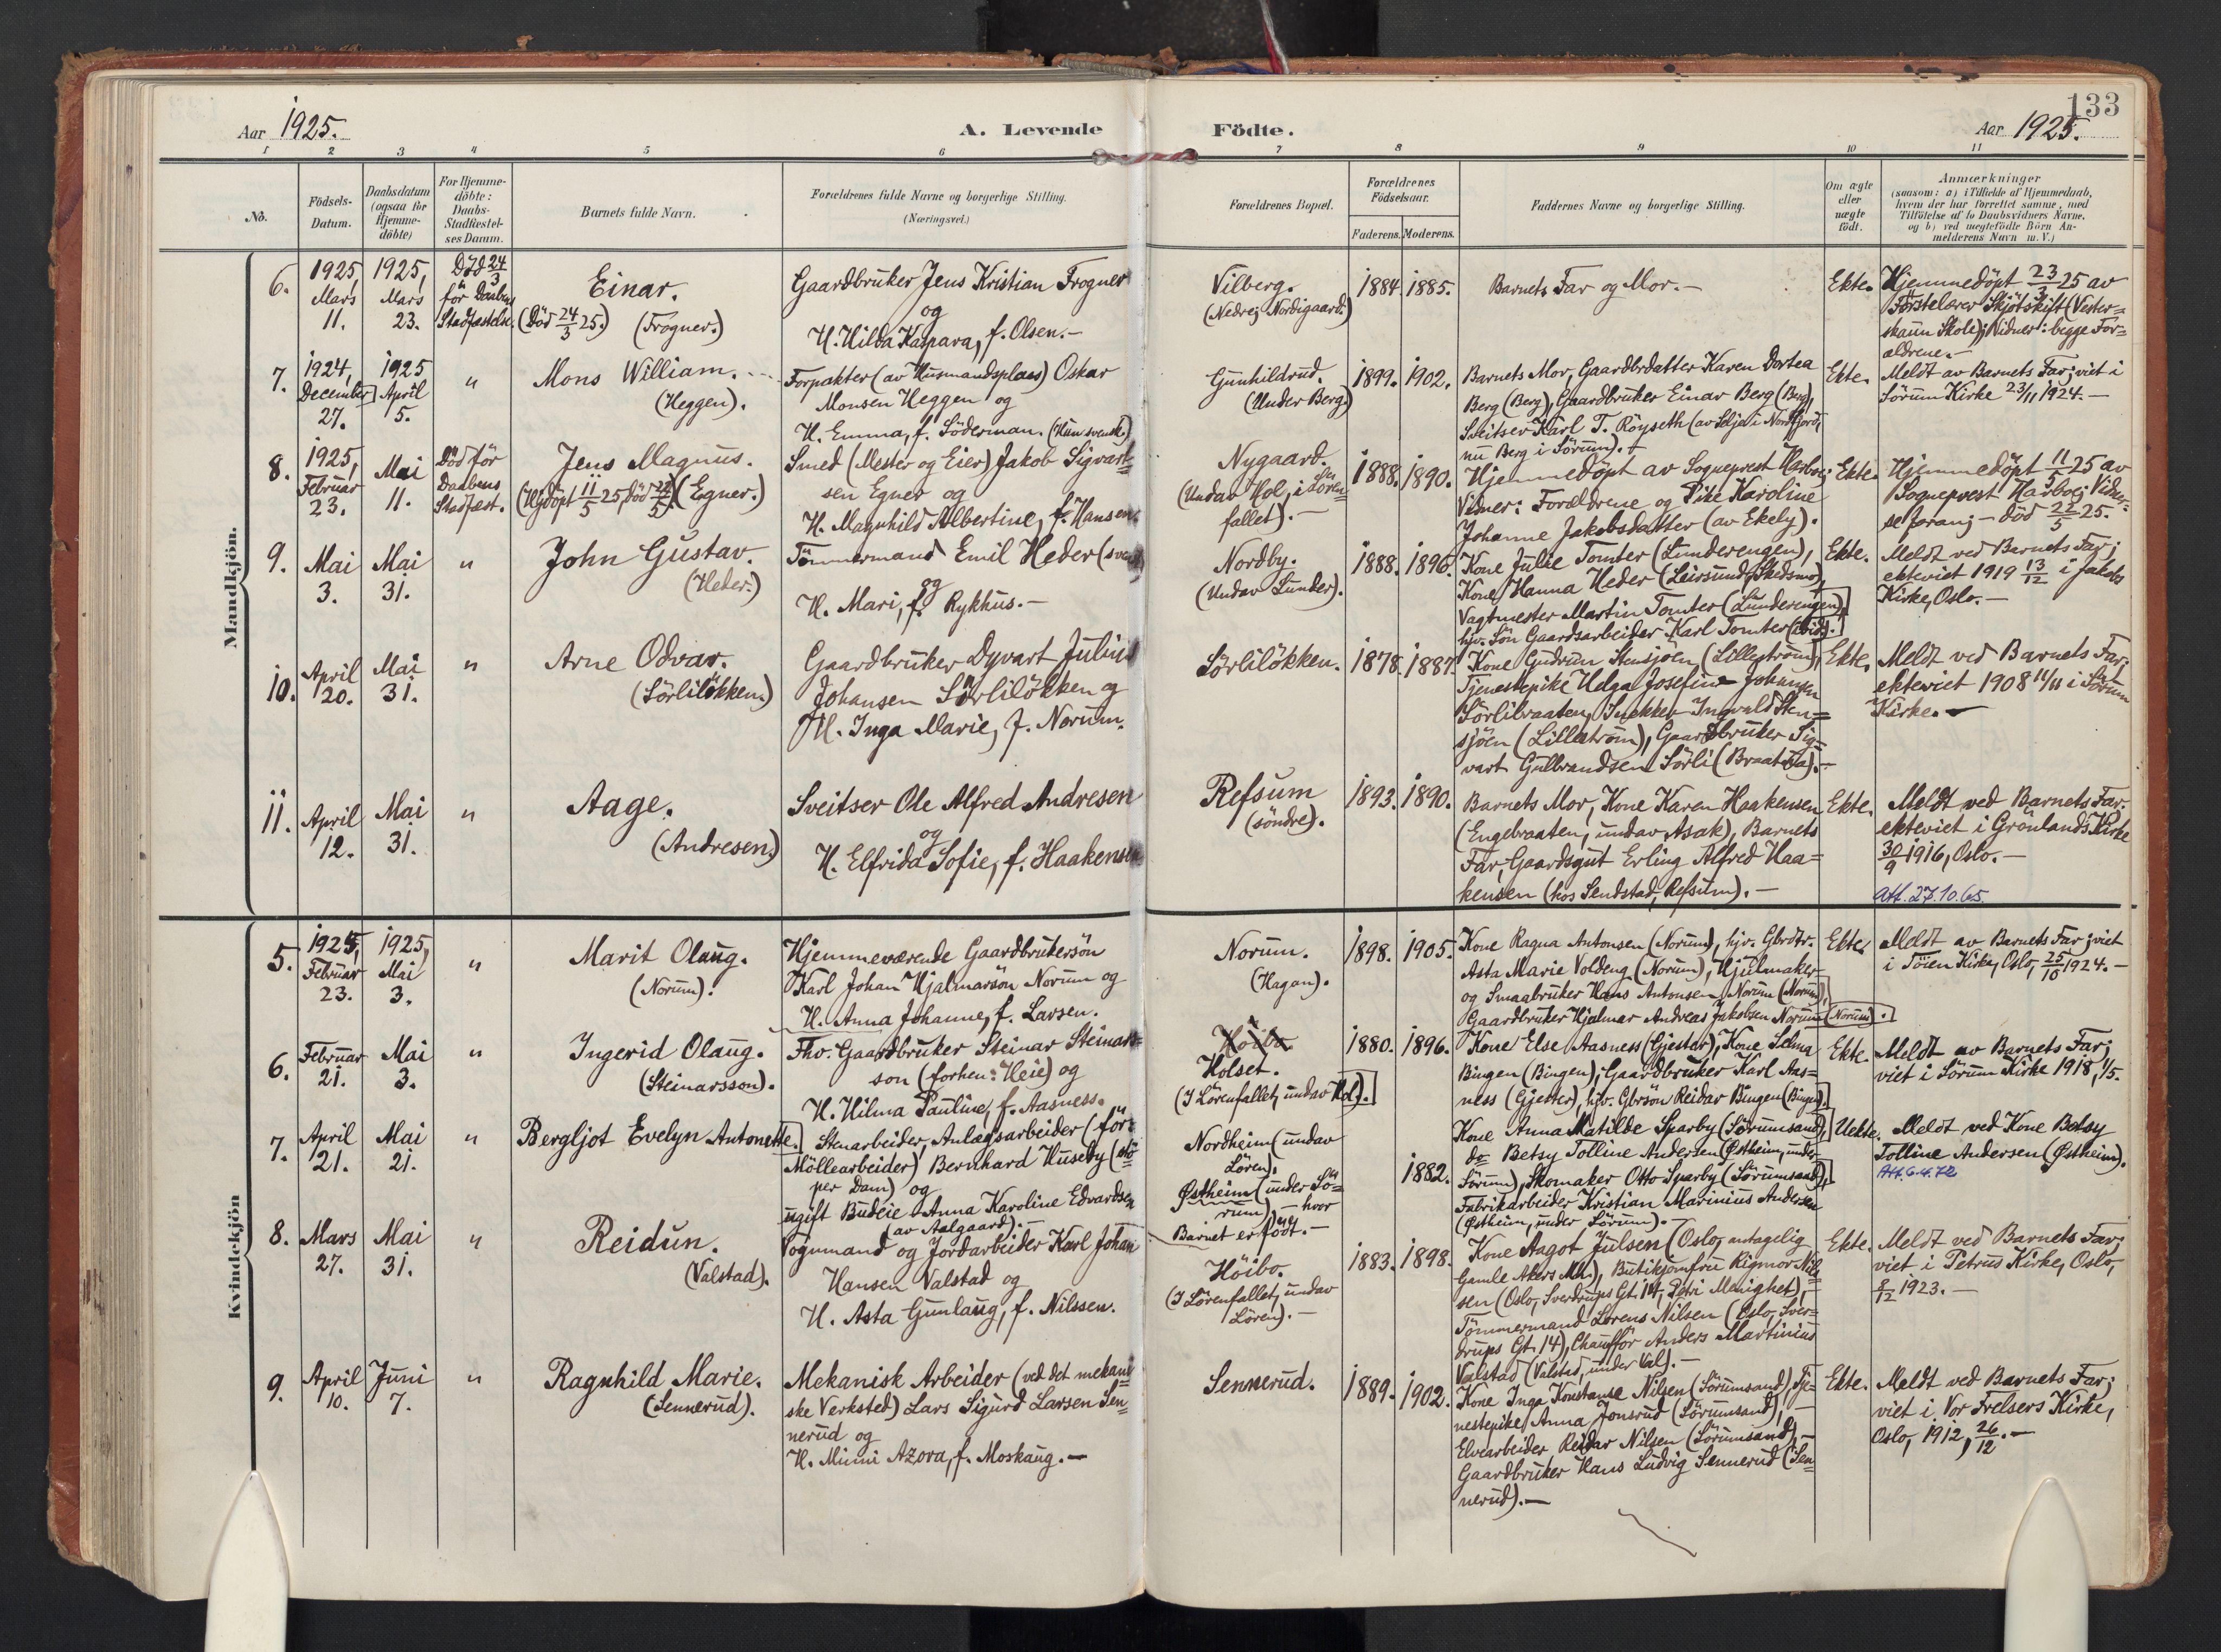 133
Aar 1925.
A. Levende
Födte.
Aar 1925.
1
2
3
4
5
6
7
8
9
10
11
No.
Födsels-
Datum.
Daabsdatum
(ogsaa for
Hjemme-
döbte)
For Hjemme-
döbte:
Daabs-
Stadfæstel-
ses Datum.
Barnets fulde Navn.
Forældrenes fulde Navne og borgerlige Stilling.
(Næringsvei.)
Forældrenes Bopæl.
Forældrenes
Födselsaar.
Faderens.
Moderens.
Faddernes Navne og borgerlige Stilling.
Om ægte
eller
uægte
födt.
Anmærkninger
(saasom: a) i Tilfælde af Hjemmedaab,
hvem der har forrettet samme, med
Tilföielse af to Daabsvidners Navne,
og b) ved uægtefödte Börn An-
melderens Navn m. V.)
Mandkjön.
6.
1925,
Mars
11.
1925,
Mars
23.
Död 24/3
för Daabens
Stadfæstelse.
Einar.
(Död 24/3 25.) (Frogner.)
Gaardbruker Jens Kristian Frogner
og
H. Hilda Kaspara, f. Olsen.-
Vilberg.
(Nedre, Nordigaard.)
1884.
1885.
Barnets Far og Mor.-
Ekte.
Hjemmedöpt 23/3 25 av
Förstelærer Skjötskift (Vester=
skaun Skole); Vidner: begge For=
ældrene.-
7.
1924,
December
27.
1925
April
5.
"
Mons William.
(Heggen).
Forpakter (av Husmandsplass) Oskar
Monsen Heggen og
H. Emma, f. Söderman. (Hun svensk)
Gunhildrud.
(Under Berg)
1899.
1902.
Barnets Mor, Gaardbrdatter Karen Dortea
Berg (Berg), Gaardbruker Einar Berg (Berg),
Sveitser Karl T. Röyseth (av Selje i Nordfjord,
nu Berg i Sörum).-
Ekte.
Meldt av Barnets Far; viet i
Sörum Kirke 23/11 1924.-
8.
1925,
Februar
23.
Mai
11.
Död för
Daabens
Stadfæst.
Jens Magnus.
(Hjdöpt 11/5 25, död 22/5) (Egner.)
Smed (Mester og Eier) Jakob Sigvart=
sen Egner og
H. Magnhild Albertine, f. Hansen.
Nygaard.
(Undav Hol, i Sören-
fallet).-
1888.
1890.
Hjemmedöpt av Sogneprest Harboe;
Vidner: Forældrene og Pike Karoline
Johanne Jakobsdatter (av Ekely).
Ekte.
Hjemmedöpt 11/5 25 av
Sogneprest Harboe; Vidner
se foran; - död 22/5 25.
9.
Mai
3.
Mai
31.
"
John Gustav.
(Heder.)
Tömmermand Emil Heder (svensk)
og
H. Mari, f. Rykhus.-
Nordby.
(Undav Lunder).
1888.
1896.
Kone Julie Tomter (Lunderengen),
Kone Hanna Heder (Leirsund, Skedsmo),
Vagtmester Martin Tomter (Lunderengen),
hjv. Sön Gaardsarbeider Karl Tomter (ibid).
Ekte.
Meldt ved Barnets Far;
ekteviet 1919 13/12 i Jakobs
Kirke, Oslo.-
10.
April
20.
Mai
31.
"
Arne Odvar.
(Sörlilökken.)
Gaardbruker Dyvart Julius
Johansen Sörlilökken og
H. Inga Marie, f. Norum.
Sörlilökken.
1878.
1887.
Kone Gudrun Stensjöen (Lilleström),
Tjenestepike Helga Josefine Johansen
Sörlibraaten, Snekker Ingvald Sten=
sjöen (Lilleström), Gaardbruker Sig=
vart Gulbrandsen Sörli (Braatna).-
Ekte.
Meldt ved Barnets Far;
ekteviet 1908 11/11 i Sörum
Kirke.-
11.
April
12.
Mai
31.
"
Aage.
(Andresen.)
Sveitser Ole Alfred Andresen
og
H. Elfrida Sofie, f. Haakensen
Refsum
(söndre).
1893.
1890.
Barnets Mor, Kone Karen Haakensen
(Engebraaten, undav Asak), Barnets
Far, Gaardsgut Erling Alfred Haa=
kensen (hos Sendstad, Refsum).-
Ekte.
Meldt ved Barnets Far.
ekteviet i Grönlands Kirke
30/9 1916, Oslo.-
Att. 27.10.65.
Kvindekjön
5.
1925,
Februar
23.
1925,
Mai
3.
"
Marit Olaug.
(Norum).
Hjemmeværende Gaardbrukersön
Karl Johan Hjalmarsön Norum og
H. Anna Johanne, f. Larsen.
Norum.
(Hagan).
1898.
1905.
Kone Ragna Antonsen (Norum), hjv. Gbrdtr.
Asta Marie Voldeng (Norum), Hjulmaker
og Smaabruker Hans Antonsen Norum (Norum),
Gaardbruker Hjalmar Andreas Jakobsen Norum (Norum).
Ekte.
Meldt av Barnets Far; viet
i Töien Kirke, Oslo, 25/10 1924.-
6.
Februar
21.
Mai
3.
"
Ingerid Olaug.
(Steinarsson).
Fhv. Gaardbruker Steinar Steinars=
son (forhen: Heie) og
H. Hilma Pauline, f. Aasness.
Höibo
Holset.
(I Lörenfallet, undav Hol).
1880.
1896.
Kone Else Aasness (Gjester), Kone Selma
Bingen (Bingen), Gaardbruker Karl Aas=
ness (Gjester), hjv. Gbrsön Reidar Bingen (Bingen).
Ekte.
Meldt av Barnets Far;
viet i Sörum Kirke 1918, 1/5.
7.
April
21.
Mai
21.
"
Bergljot Evelyn Antonette.
Stenarbeider, Anlægsarbeider (för
Möllearbeider) Bernhard Huseby (stö=
per Dam) og
ugift Budeie Anna Karoline Edvardsen
(av Aalgaard).-
Nordheim (undav
Lören).
Østheim (under Sö=
rum), - hvor
Barnet er födt.-
1882.
Kone Anna Matilde Sparby (Sörumsand),
do Betsy Tolline Andersen (Østheim, under
Sörum), Skomaker Otto Sparby (Sörumsand),
Fabrikarbeider Kristian Marinius Andersen
(Østheim, under Sörum).-
Uekte.
Meldt ved Kone Betsy
Tolline Andersen (Østheim).
Att. 6.4.72
8.
Mars
27.
Mai
31.
"
Reidun.
(Valstad).
Vognmand og Jordarbeider Karl Johan
Hansen Valstad og
H. Asta Gunlaug, f. Nilssen.
Höibo.
(I Lörenfallet, undav
Lören).-
1883.
1898.
Kone Aagot Julsen (Oslo, antagelig
Gamle Akers Mh.), Butikjomfru Rigmor Nil=
sen (Oslo, Sverdrups Gt. 14, Petri Menighet),
Tömmermand Lorens Nilsen (Oslo, Sver=
drups Gt. 14), Chaufför Anders Martinius
Valstad (Valstad, under Val).-
Ekte.
Meldt ved Barnets Far;
viet i Petrus Kirke, Oslo,
8/12 1923.-
9.
April
10.
Juni
7.
"
Ragnhild Marie.
(Sennerud).
Mekanisk Arbeider (ved det mekani=
ske Verksted) Lars Sigurd Larsen Sen=
nerud og
H. Mimi Azora, f. Moskaug.-
Sennerud.
1889.
1902.
Kone Inga Konstanse Nilsen (Sörumsand), Tje=
nestepike Anna Jonsrud (Sörumsand),-
Elvearbeider Reidar Nilsen (Sörumsand),-
Gaardbruker Hans Ludvig Sennerud (Sen=
nerud).-
Ekte.
Meldt ved Barnets Far;
viet i Vor Frelsers Kirke,
Oslo, 1912, 26/12.-